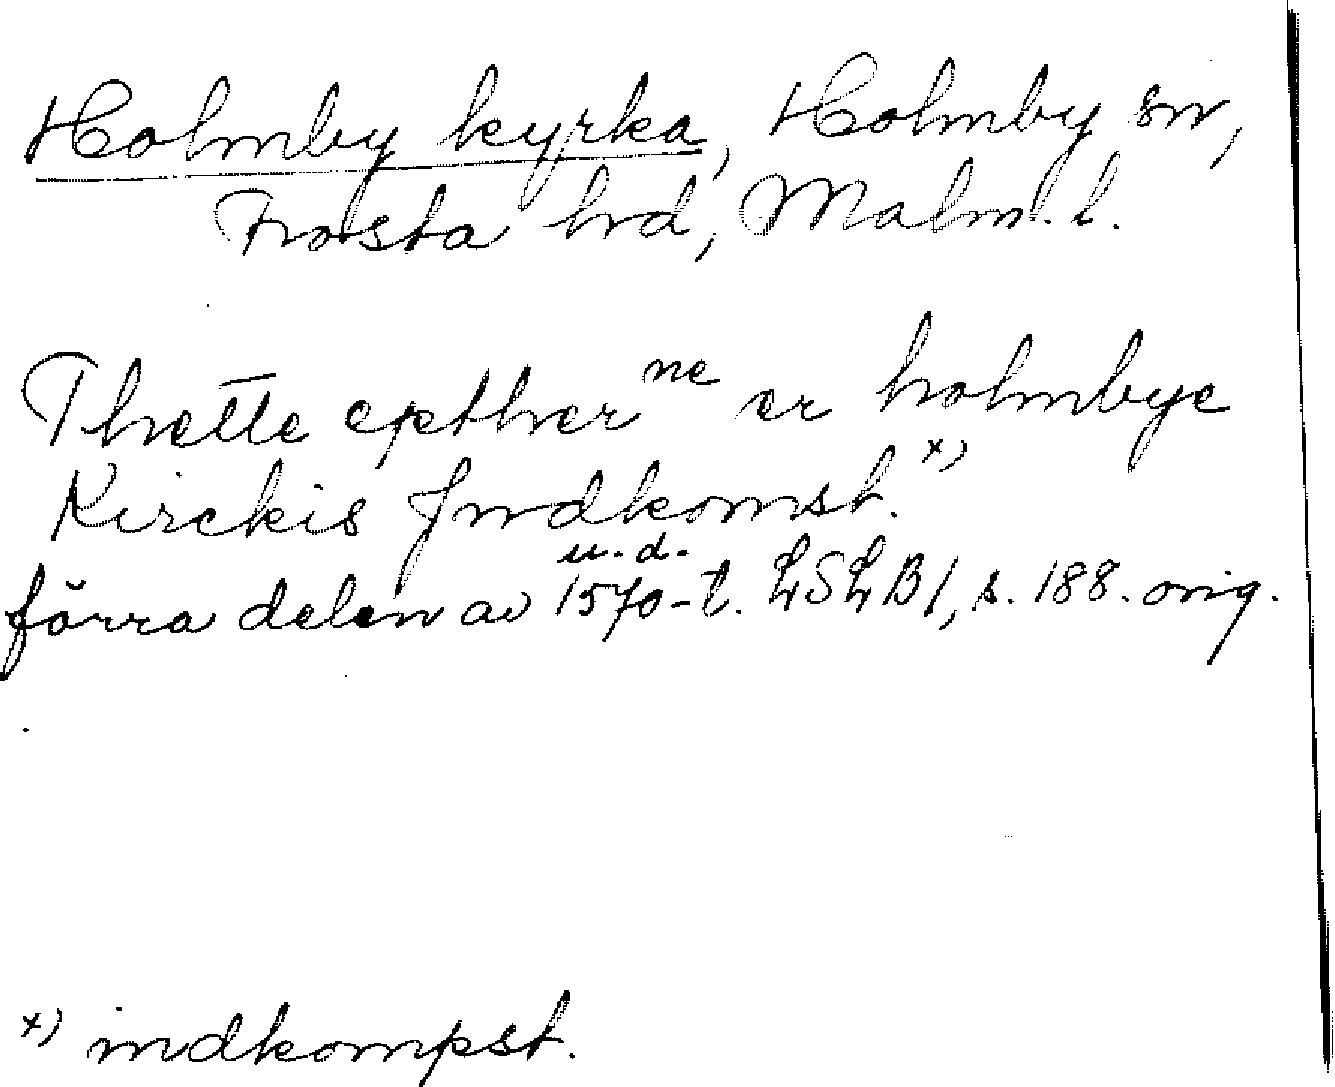 Holmby kyrka, Holmby sn,
Frosta hrd, Malm. l.
Thette epther ne er holmbye
Kirckis Jndkomst. x)
u. d.
förra delen av 1570-t. LSLB 1, s. 188. orig.
x) indkompst.